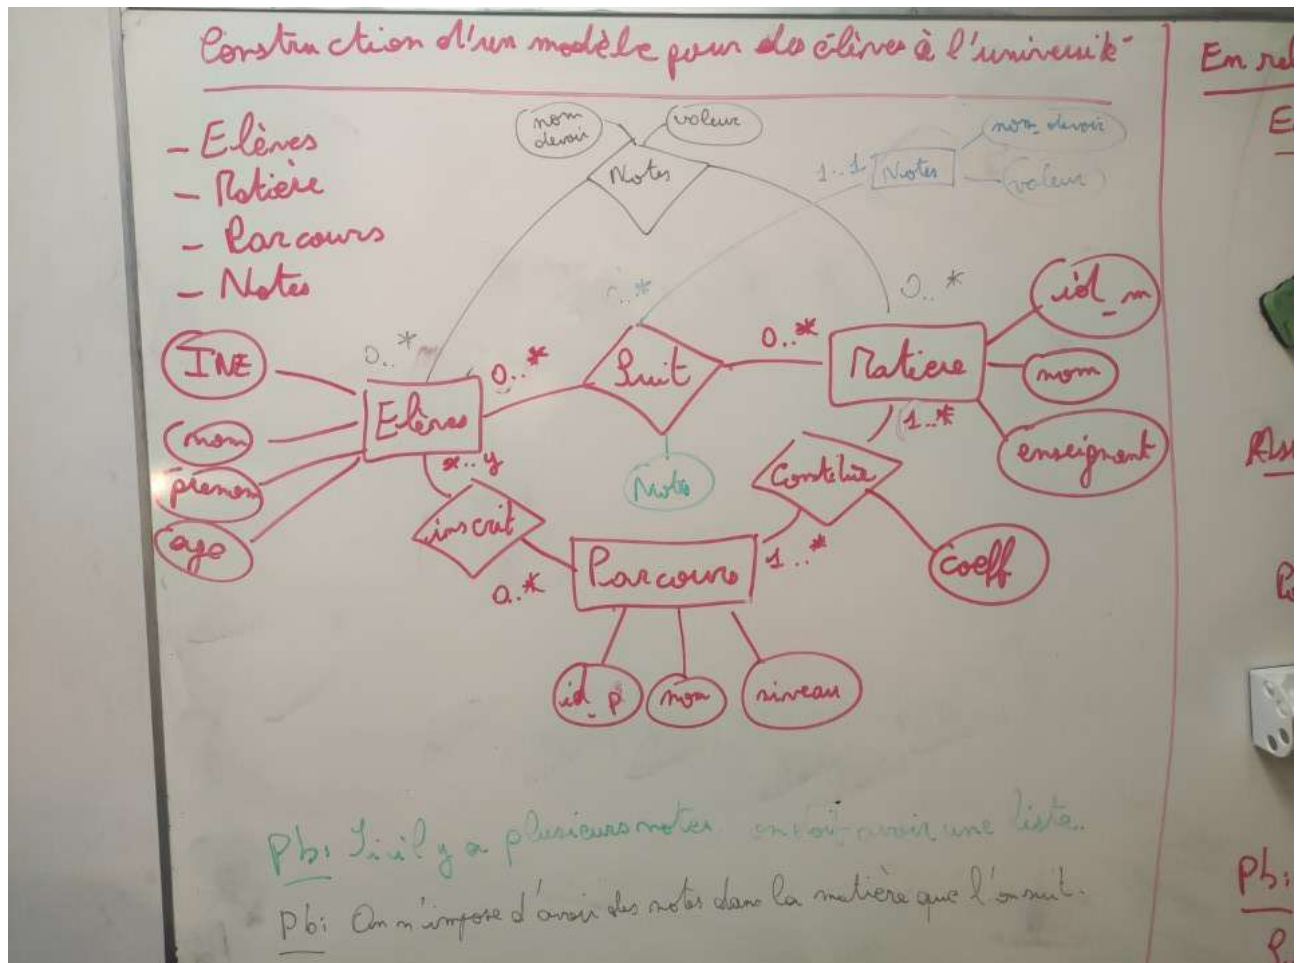 Construction d'un modèle pour des élèves à l'université
- Elèves
- Matière
- Parcours
- Notes
nom devoir
valeur
Notes
1..1
Notes
nom devoir
valeur
0..*
0..*
..*
INE
nom
prenom
age
Elèves
0..*
Suit
0..*
Matiere
id_m
nom
enseignant
Note
x..y
inscrit
0..*
Parcours
1..*
Constitue
1..*
coeff
id_p
nom
niveau
Pb: Si il y a plusieurs notes on doit avoir une liste.
Pb: On n'impose d'avoir des notes dans la matière que l'on suit.
En rel
E
Ass
Pb: